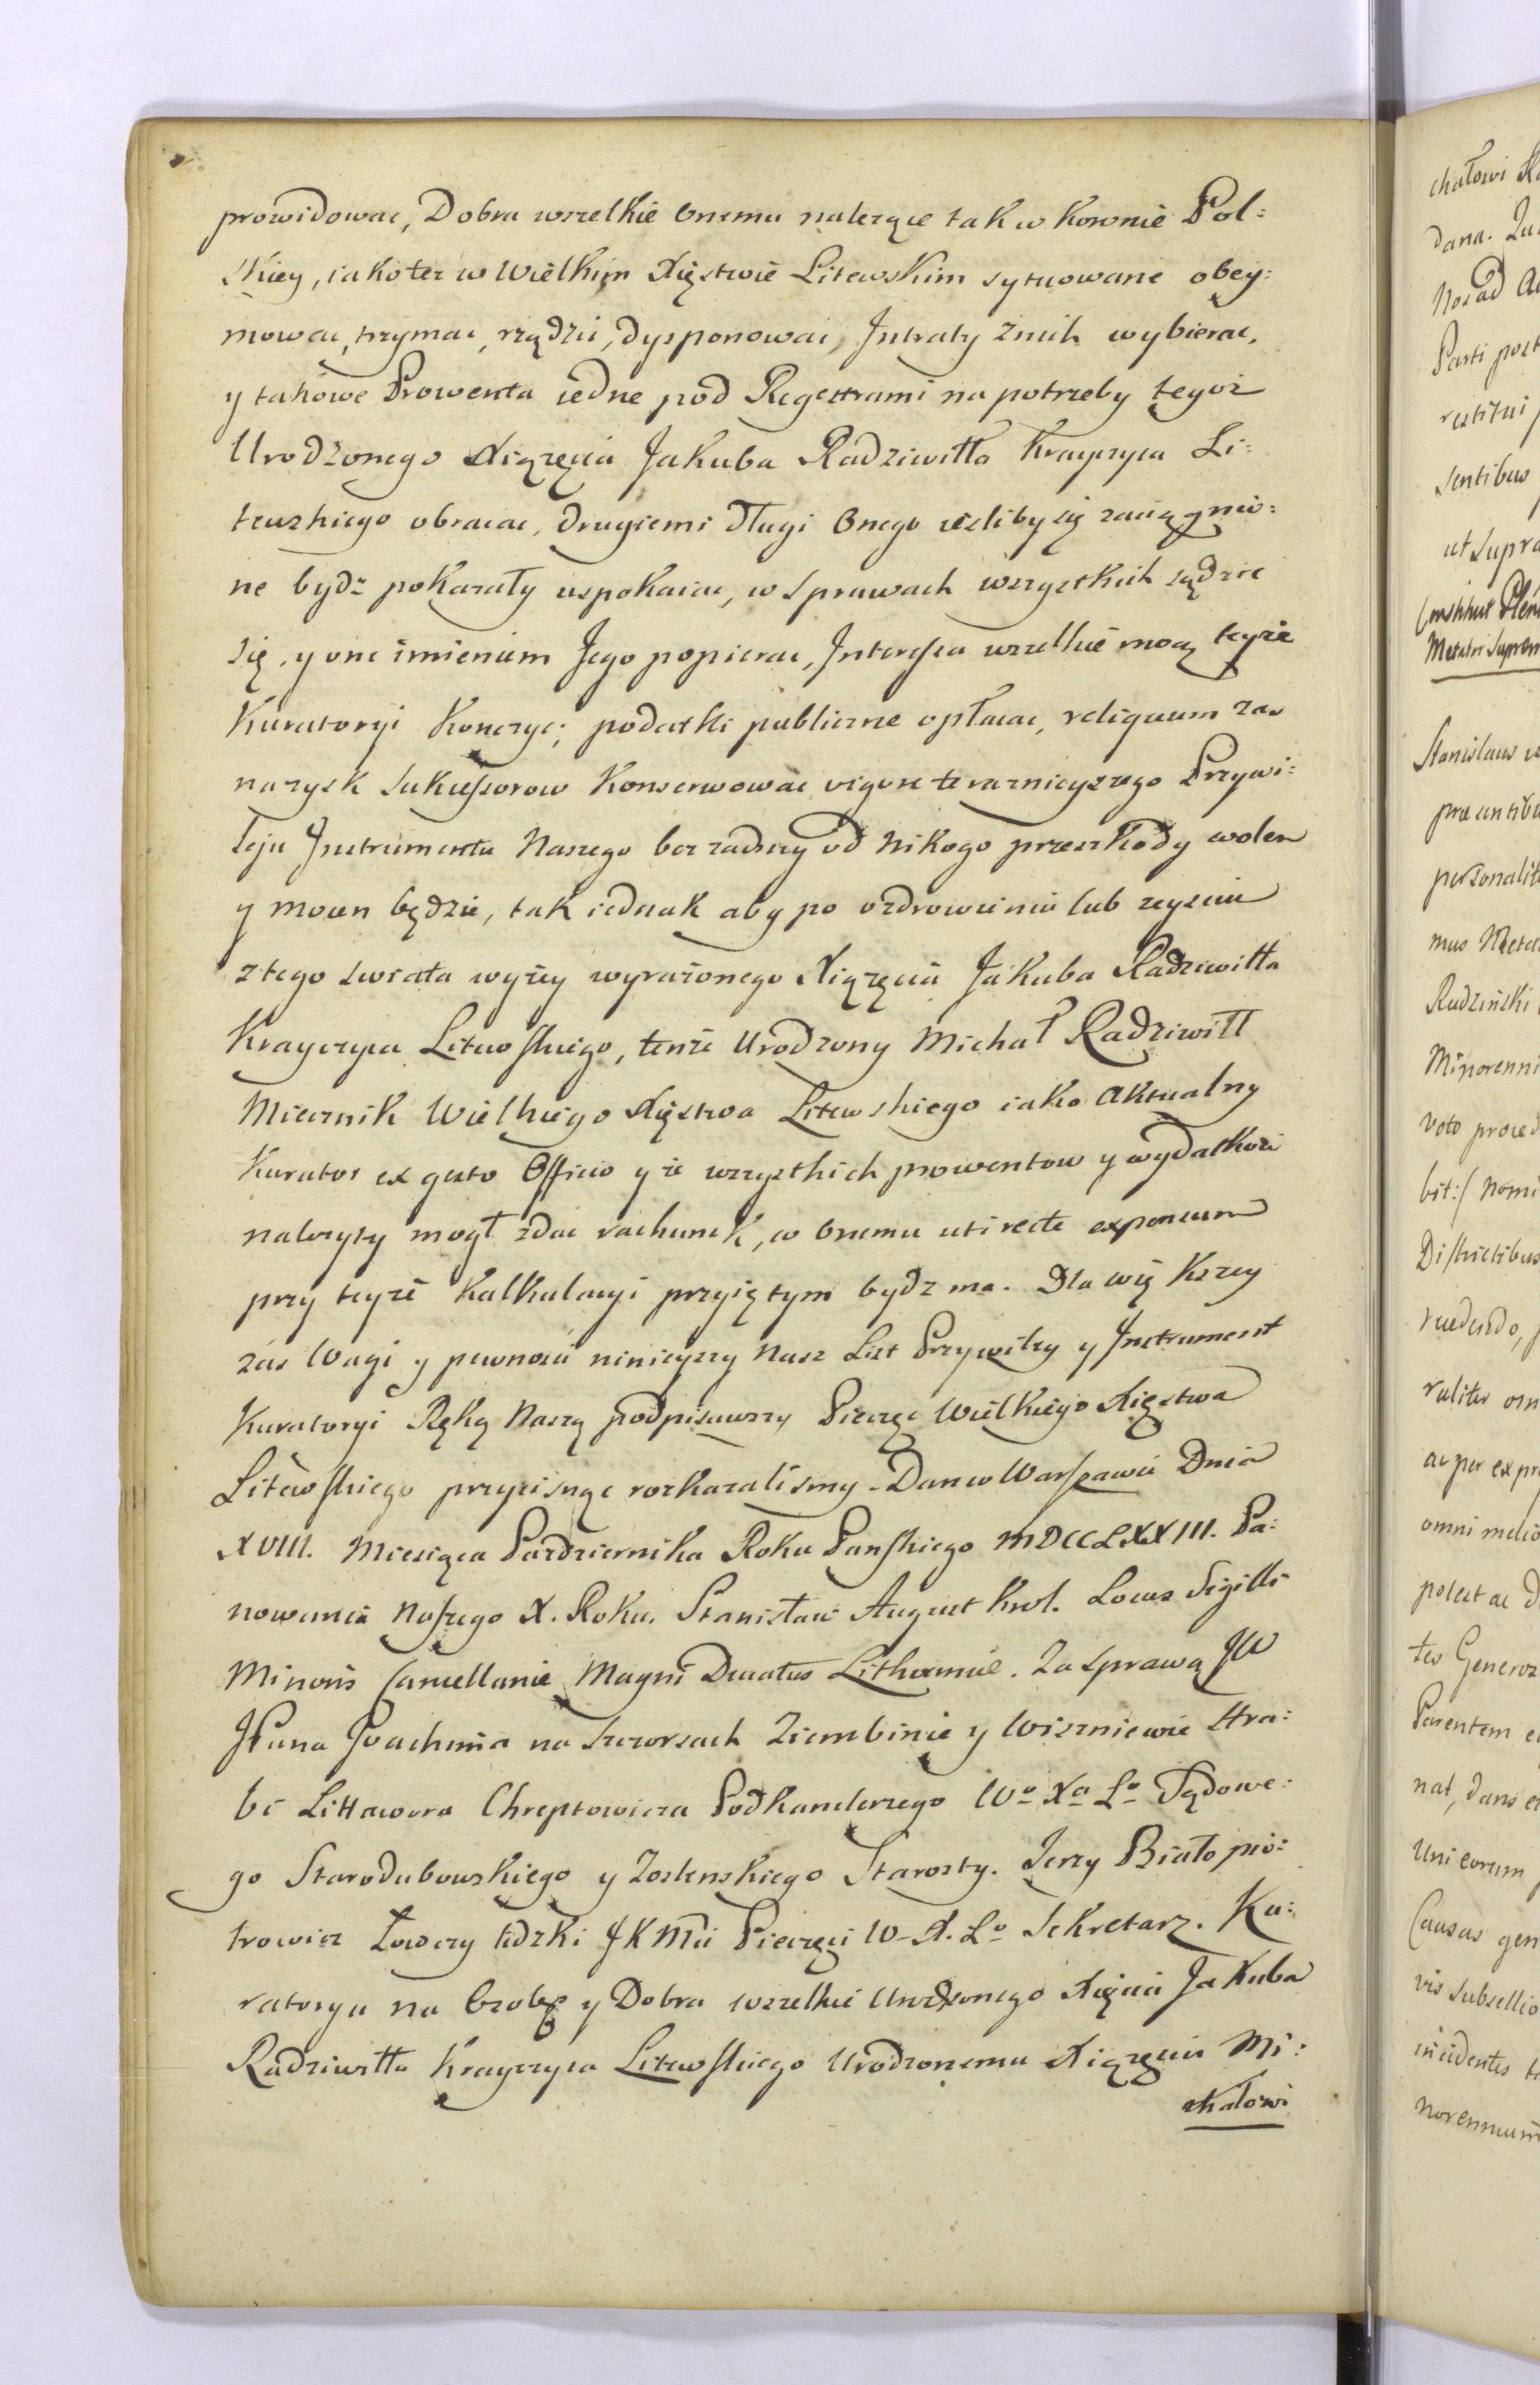 prowidowac, Dobra wszelkie Onemu należące tak w koronie Pol:
skiey, iako też w Wielkim Xięstwie Litewskim sytuowane obey:
mowac, trzymac, rządzic, dysponowac, Intraty znich wybierac,
y takowe Prowenta iedne pod Regestrami na potrzeby tegoż
Urodzonego Xiążęcia Jakuba Radziwiłła Krayczyca Li:
tewskiego obracac, drugiemi długi Onego iesliby się zaciągnio:
ne bydź pokazały uspokaiac, w sprawach wszystkich sądzic
się, y one imieniem Jego popierac, Interessa wszelkie mocą teyże
Kuratoryi Konczyc, podatki publiczne opłacac, reliquum zas
nazysk Sukcessorow Konserwowac vigore teraznieyszego Przywi:
leju Instrumentu Naszego bez zadney od Nikogo przeszkody wolen
y mocen będzie, tak iednak aby po ozdrowieniu lub zeysciu
z tego swiata wyżey wyrażonego Xiążęcia Jakuba Radziwiłła
Krayczyca Litewskiego, tenże Urodzony Michał Radziwiłł
Miecznik Wielkiego Xięstwa Litewskiego iako aktualny
Kurator ex gesto Officio y ze wszystkich prowentow y wydatkow
należyty mogł zdac rachunek, co Onemu uti recte expensum
przy teyże Kalkulacyi przyiętym bydz ma. Dla większey
zas Wagi y pewnosci ninieyszy Nasz List Przywiley y Instrument
Kuratoryi Ręką Naszą podpisawszy Pieczęc Wielkiego Xięstwa
Litewskiego przycisnąc rozkazalismy. Dan w Warszawie Dnia
XVIII. Miesiąca Pazdziernika Roku Panskiego MDCCLXXIII. Pa:
nowania Naszego X. Roku. Stanisław August Krol. Locus Sigilli
Minoris Cancellariæ Magni Ducatus Lithuaniæ. Za sprawą JW
JPana Joachima na Szczorsach Ziembinie y Wiszniewie Hra:
bi Littawora Chreptowicza Podkanclerzego Wo Xa Lo Sądowe:
go Starodubowskiego y Starosty. Jerzy Białopio:
trowicz Łowczy Lidzki JKMci Pieczęci W. X. Lo Sekretarz. Ku:
ratorya na Osobę y Dobra wszelkie Urodzonego Xięcia Jakuba
Radziwiłła Krayczyca Litewskiego Urodzonemu Xiążęciu Mi:
chałowi
chałowi
dana.
Parti
restitui
sentibus
ut supra
Stanislaus
personalit
Rudziński
voto
omni
potest ac
Parentem
nat, dans
Uni eorum
Causas gen
vis subsellio
incidentes